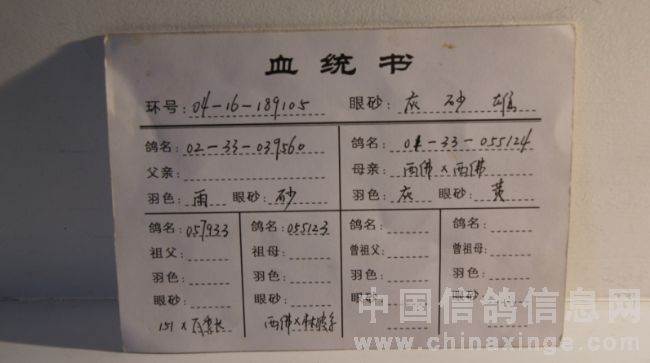 血统书
环号: 04-16-189105 眼砂: 灰 砂 雄
鸽名: 02-33-039560 鸽名: 01-33-055124
父亲: 母亲: 西佛×西佛
羽色: 雨 眼砂: 砂 羽色: 灰 眼砂: 黄
鸽名: 057933 鸽名: 055123 鸽名: 鸽名:
祖父: 祖母: 曾祖父: 曾祖母:
羽色: 羽色: 羽色: 羽色:
眼砂: 眼砂: 眼砂: 眼砂:
151× 西佛×
中国信鸽信息网
www.chinaxinge.com